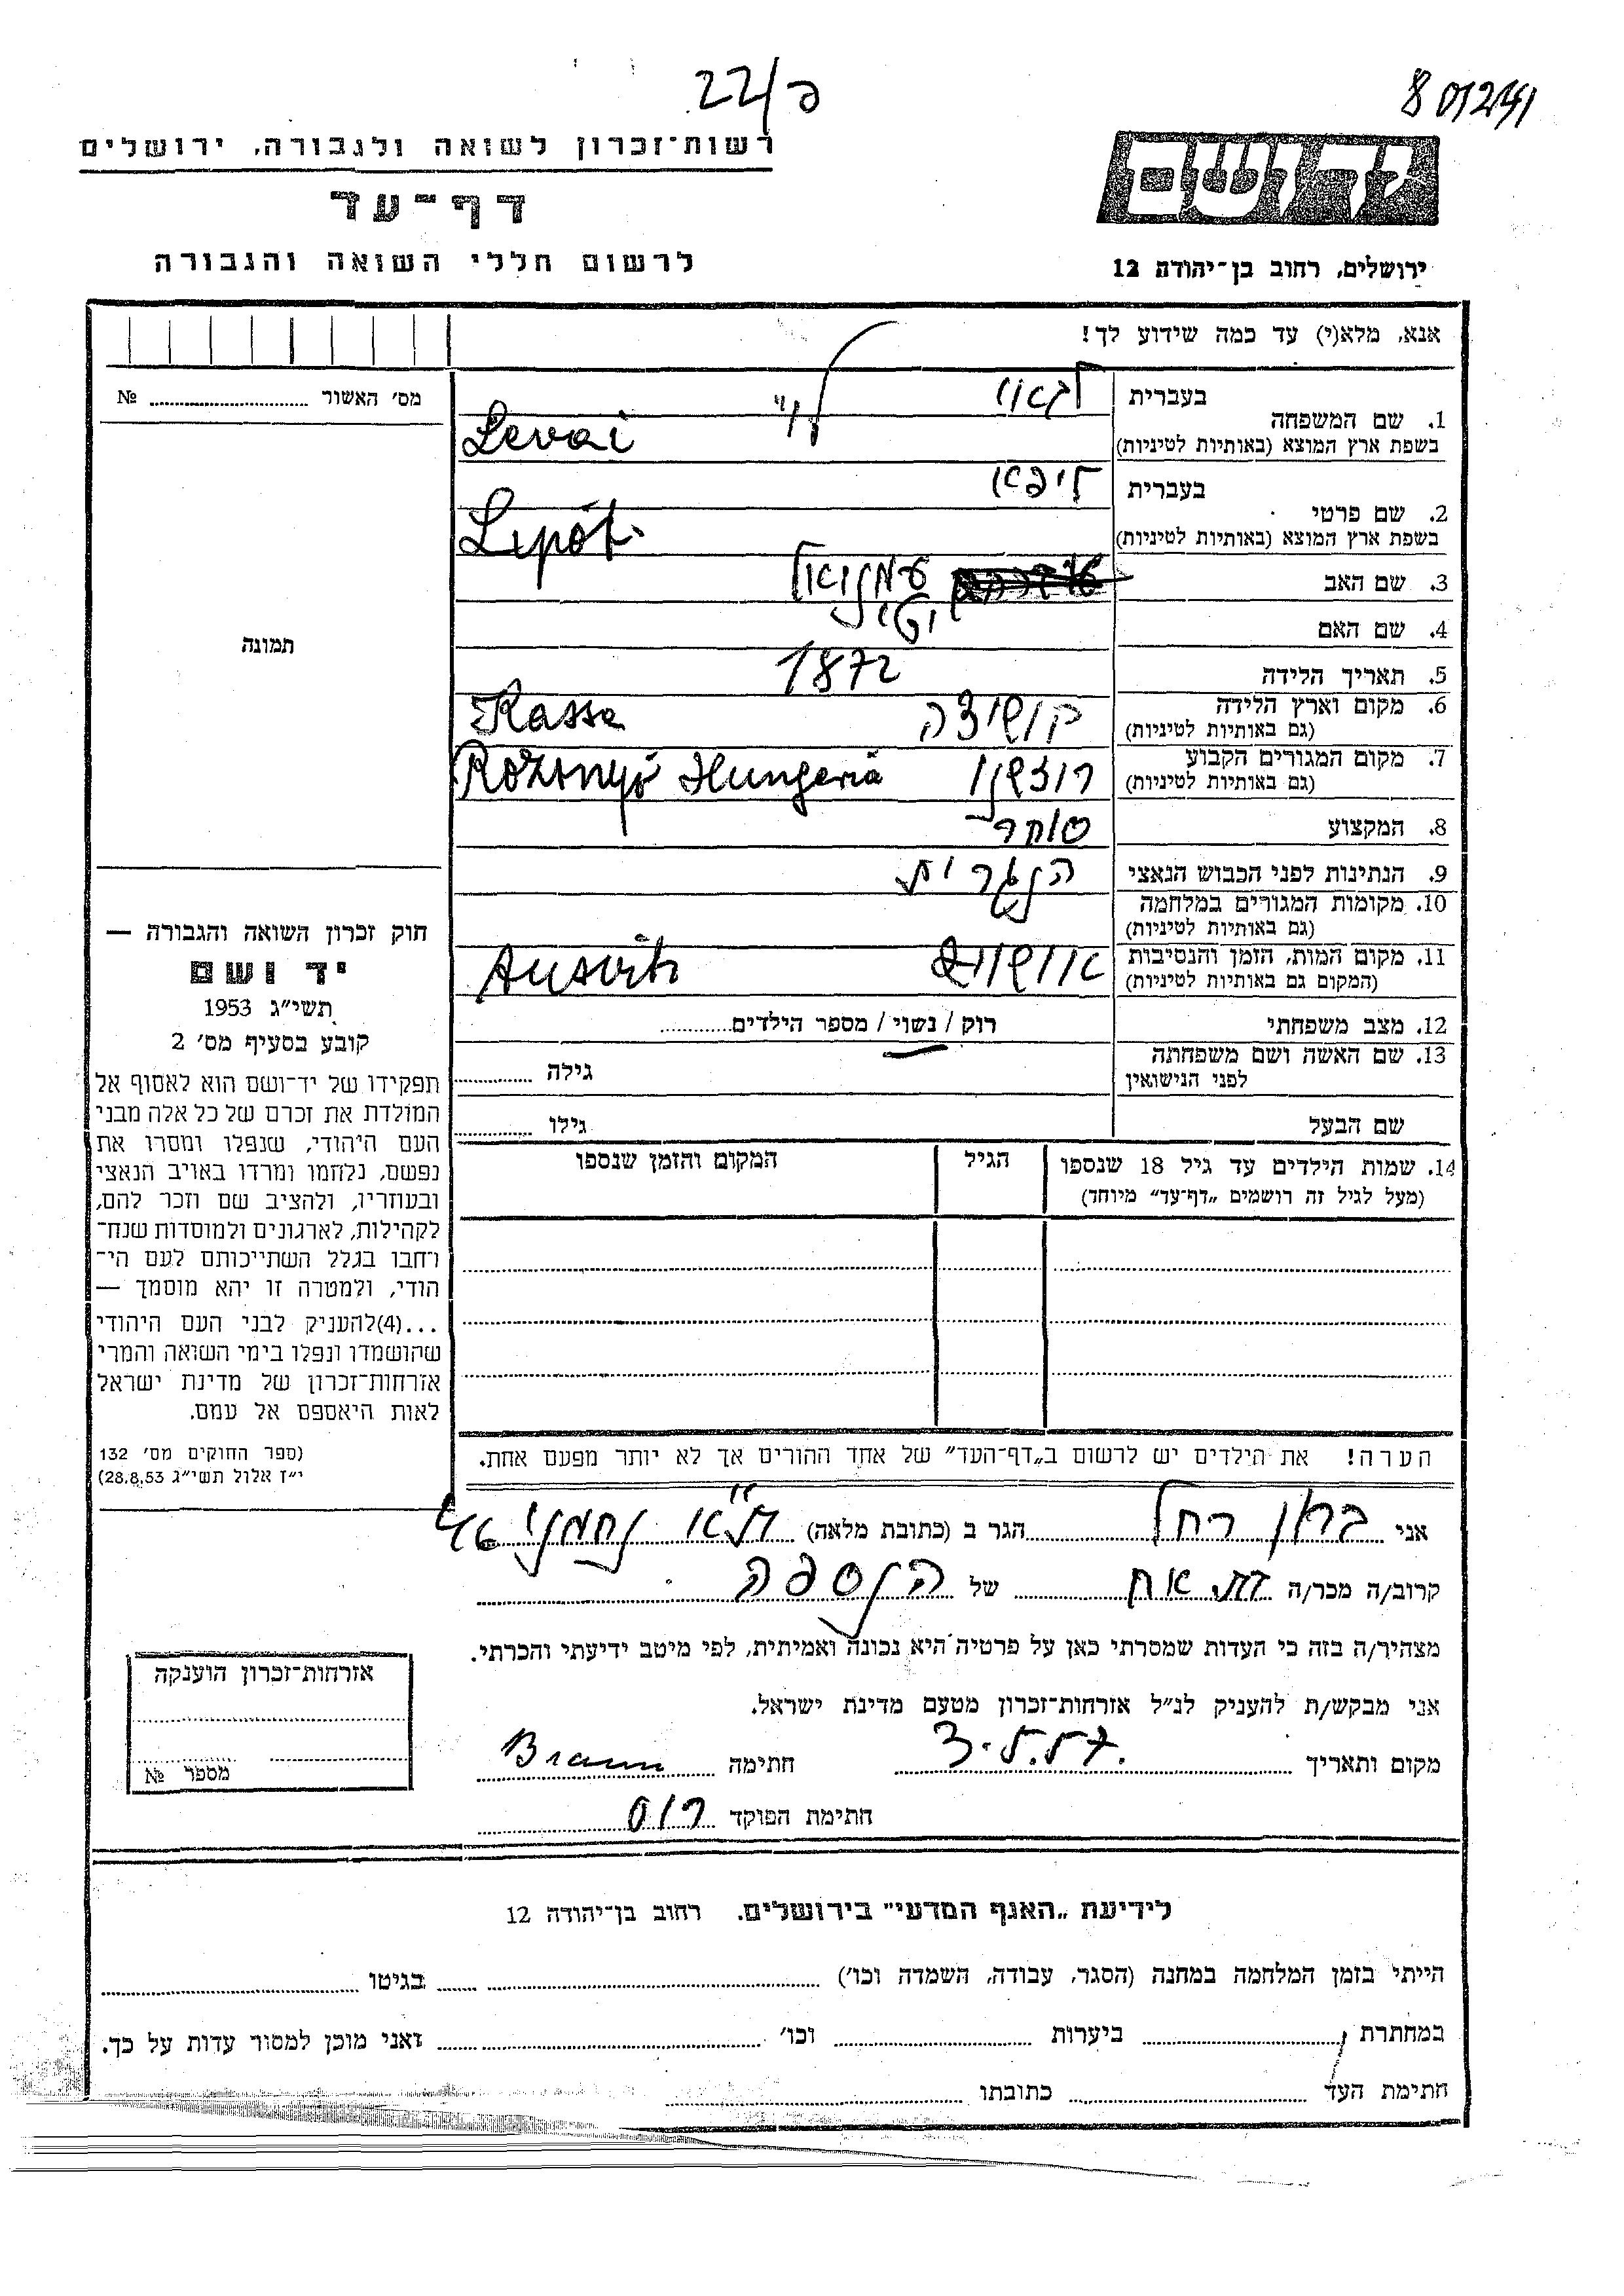 22/פ
רשות־זכרון לשואה ולגבורה, ירושלים
דף־עד
לרשום חללי השואה והגבורה
יד ושם
ירושלים, רחוב בן־יהודה 12
אנא, מלא(י) עד כמה שידוע לך!
מס׳ האשור № 
1. שם המשפחה
בעברית
בשפת ארץ המוצא (באותיות לטיניות)
Levai
2. שם פרטי
בעברית
בשפת ארץ המוצא (באותיות לטיניות)
Lipót
3. שם האב
4. שם האם
תמונה
5. תאריך הלידה 1872
6. מקום וארץ הלידה קושיצה Kassa
(גם באותיות לטיניות)
7. מקום המגורים הקבוע Rozsnyó Hungeria
(גם באותיות לטיניות)
8. המקצוע סוחר
9. הנתינות לפני הכבוש הנאצי הנגרית
10. מקומות המגורים במלחמה
(גם באותיות לטיניות)
11. מקום המות, הזמן והנסיבות Ausvits
(המקום גם באותיות לטיניות)
12. מצב משפחתי רוק / נשוי / מספר הילדים
13. שם האשה ושם משפחתה
לפני הנישואין
גילה
שם הבעל גילו
14. שמות הילדים עד גיל 18 שנספו
(מעל לגיל זה רושמים „דף־עד״ מיוחד)
הגיל
המקום והזמן שנספו
חוק זכרון השואה והגבורה —
יד ושם
תשי״ג 1953
קובע בסעיף מס׳ 2
תפקידו של יד־ושם הוא לאסוף אל
המולדת את זכרם של כל אלה מבני
העם היהודי, שנפלו ומסרו את
נפשם, נלחמו ומרדו באויב הנאצי
ובעוזריו, ולהציב שם וזכר להם,
לקהילות, לארגונים ולמוסדות שנח־
רחבו בגלל השתייכותם לעם הי־
הודי, ולמטרה זו יהא מוסמך —
...(4)להעניק לבני העם היהודי
שהושמדו ונפלו בימי השואה והמרי
אזרחות־זכרון של מדינת ישראל
לאות היאספם אל עמם.
(ספר החוקים מס׳ 132
י״ז אלול תשי״ג 28.8.53)
הערה! את הילדים יש לרשום ב„דף־העד״ של אחד ההורים אך לא יותר מפעם אחת.
אני ברון רחל הגר ב (כתובת מלאה) ת״א נחמני 46
קרוב/ה מכר/ה בת.אח של הנספה
מצהיר/ה בזה כי העדות שמסרתי כאן על פרטיה היא נכונה ואמיתית, לפי מיטב ידיעתי והכרתי.
אני מבקש/ת להעניק לנ״ל אזרחות־זכרון מטעם מדינת ישראל.
מקום ותאריך חתימה Braun
חתימת הפוקד
אזרחות־זכרון הוענקה
מספר №
לידיעת „האגף המדעי״ בירושלים. רחוב בן־יהודה 12
הייתי בזמן המלחמה במחנה (הסגר, עבודה, השמדה וכו׳) בגיטו
במחתרת ביערות וכו׳ ואני מוכן למסור עדות על כך.
חתימת העד כתובתו